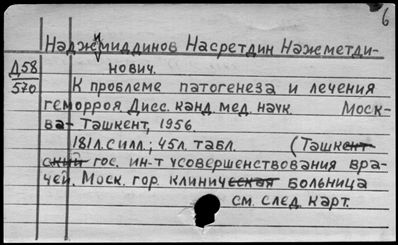 6
Наджемиддинов Насретдин Нажметди-
Д58 нович.
570 К проблеме патогенеза и лечения
геморроя Дисс. канд. мед. наук. Моск-
ва-Ташкент, 1956.
181л.силл.; 45л. табл. (Ташкент
ский гос. ин-т усовершенствования вра-
чей. Моск. гор. клиническая больница
см. след. карт.